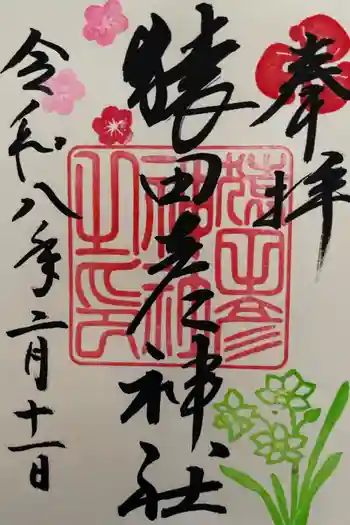 奉拝
猿田彦神社
猿田彦
神社
之印
令和八年二月十一日